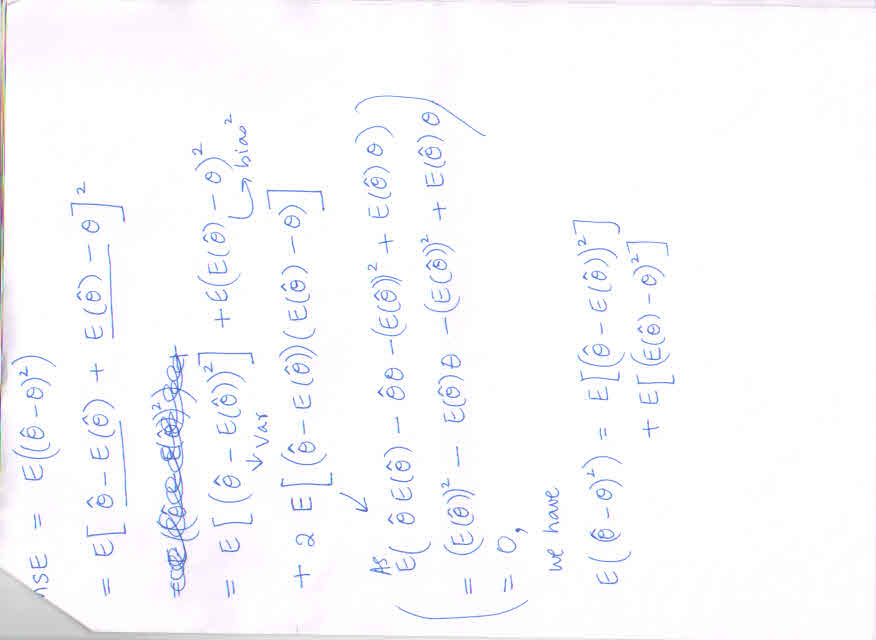 MSE = E((θ̂ - θ)²)
= E[ θ̂ - E(θ̂) + E(θ̂) - θ ]²
= E[ (θ̂ - E(θ̂))² ] + E(E(θ̂) - θ)²
↓ Var → bias²
+ 2 E[ (θ̂ - E(θ̂)) (E(θ̂) - θ) ]
As
E( θ̂ E(θ̂) - θ̂θ - (E(θ̂))² + E(θ̂) θ )
= (E(θ̂))² - E(θ̂)θ - (E(θ̂))² + E(θ̂) θ
= 0,
we have
E( (θ̂ - θ)²) = E[(θ̂ - E(θ̂))²]
+ E[(E(θ̂) - θ)²]